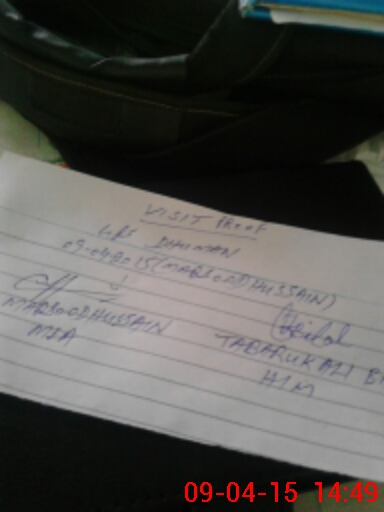 VISIT PROOF
LBS DHIMAN
09-04-2015 (MAQSOOD HUSSAIN)
MAQSOOD HUSSAIN
MIA
TABARUK ALI B
HIM
09-04-15 14:49